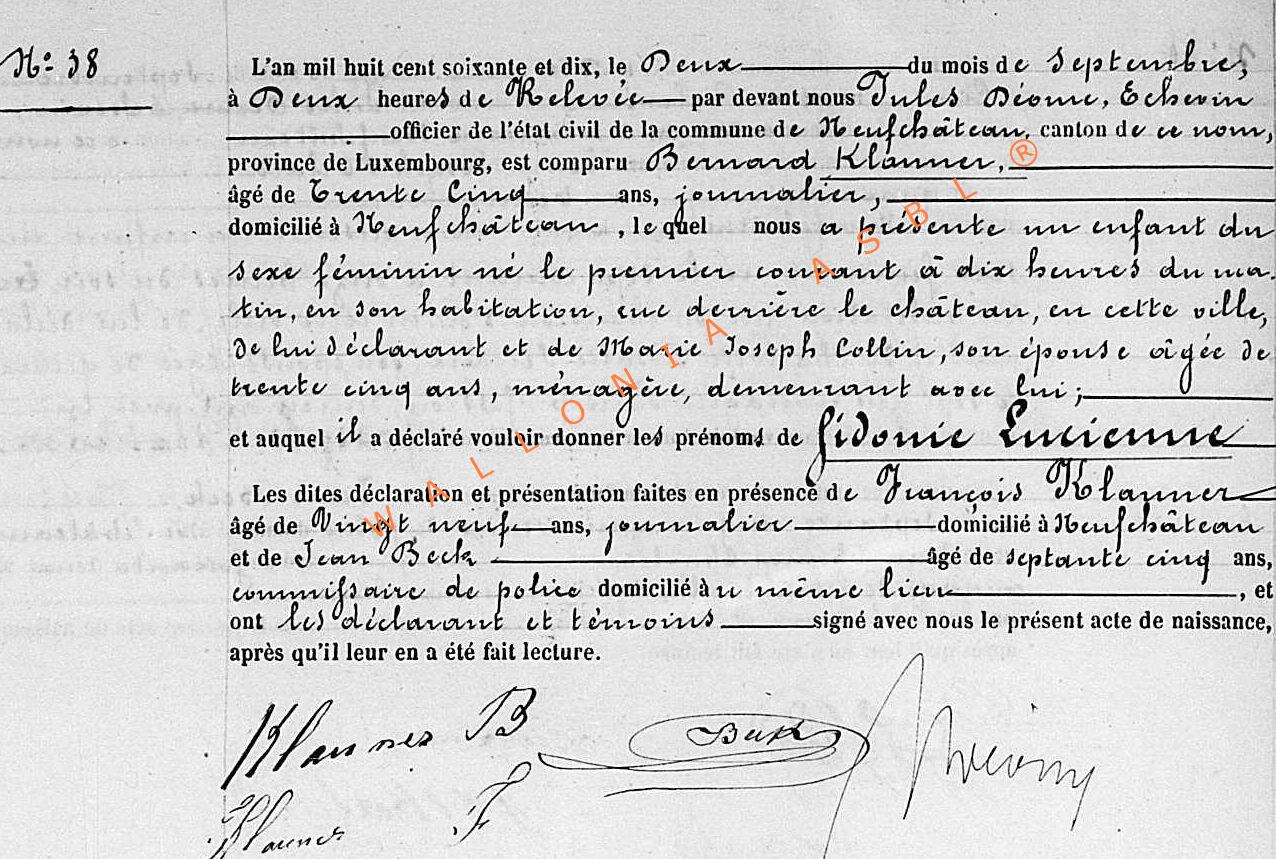 Nº 38
L'an mil huit cent soixante et dix, le Deux du mois de Septembre,
à Deux heures de Relevée par devant nous Jules Déome, Echevin
officier de l'état civil de la commune de Neufchâteau, canton de ce nom,
province de Luxembourg, est comparu Bernard Klanner, ®
âgé de trente Cinq ans, journalier,
domicilié à Neufchâteau, le quel nous a présenté un enfant du
sexe féminin né le premier courant à dix heures du ma-
tin, en son habitation, rue derrière le château, en cette ville,
de lui déclarant et de Marie Joseph Collin, son épouse âgée de
trente cinq ans, ménagère, demeurant avec lui;
et auquel il a déclaré vouloir donner les prénoms de Sidonie Lucienne
Les dites déclaration et présentation faites en présence de François Klanner
âgé de Vingt neuf ans, journalier domicilié à Neufchâteau
et de Jean Beck âgé de septante cinq ans,
commissaire de police domicilié au même lieu, et
ont les déclarant et témoins signé avec nous le présent acte de naissance,
après qu'il leur en a été fait lecture.
WALLONIA ASBL
Klanner B
Beck
Klanner F